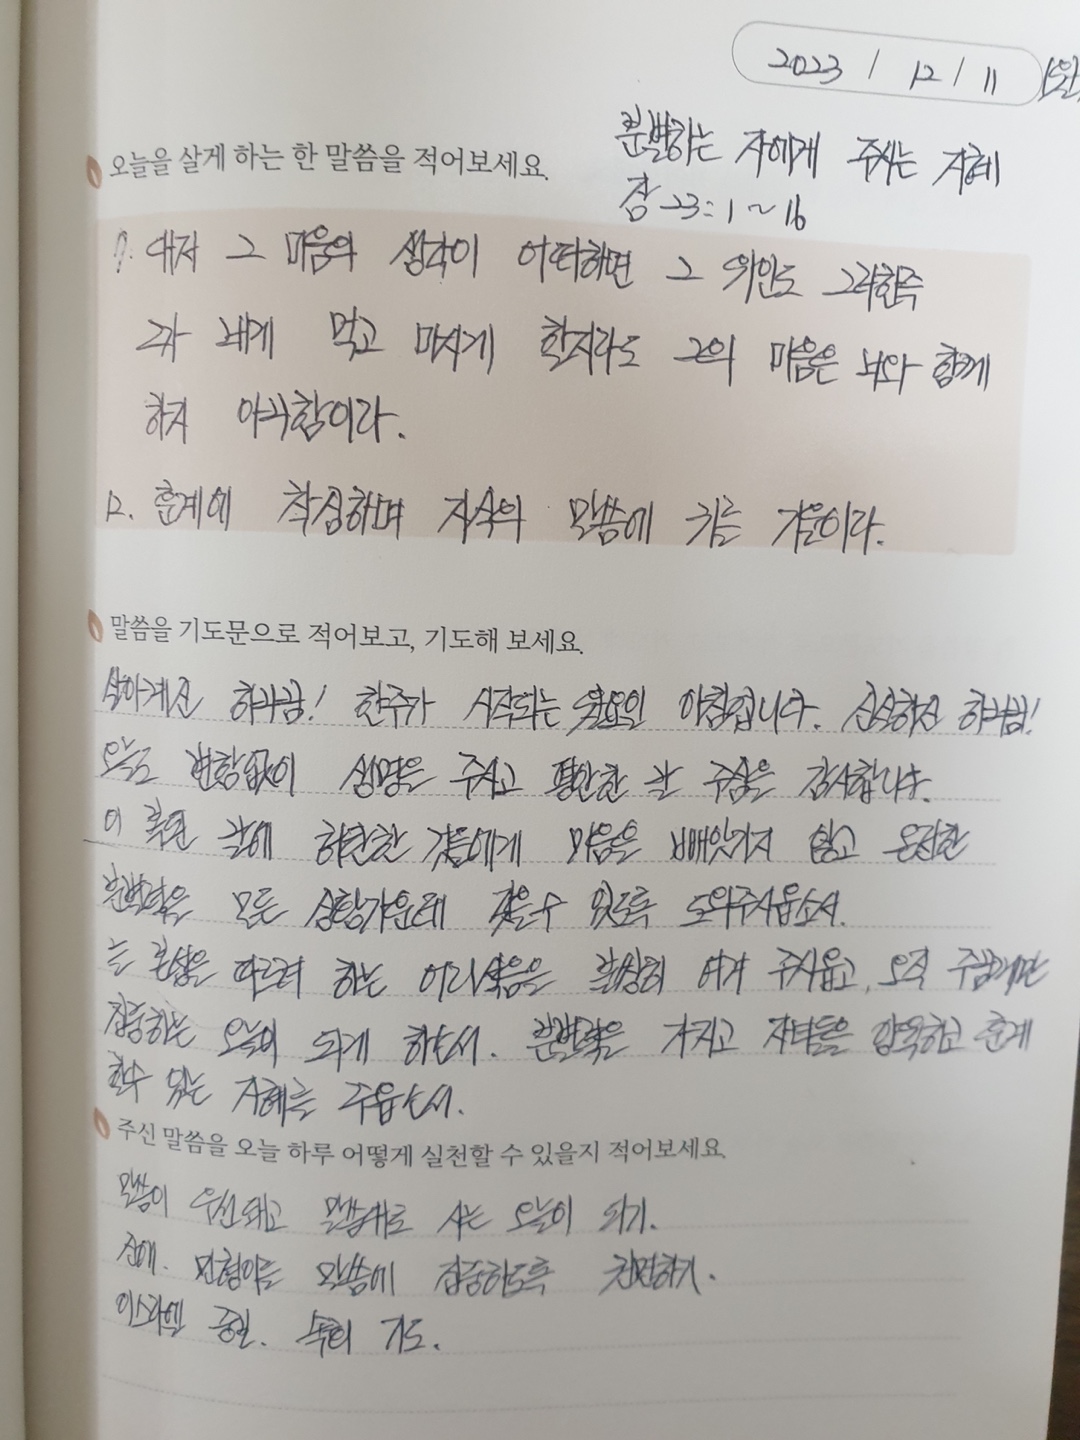 2023 / 12 / 11 (월)
분별하는 자에게 주시는 지혜
오늘을 살게 하는 한 말씀을 적어보세요.
잠 23:1~16
7. 대저 그 마음의 생각이 어떠하면 그 위인도 그러한즉
그가 네게 먹고 마시게 할지라도 그의 마음은 너와 함께
하지 아니함이라.
12. 훈계에 착심하며 지식의 말씀에 귀를 기울이라.
말씀을 기도문으로 적어보고, 기도해 보세요.
살아계신 하나님! 한주가 시작되는 월요일 아침입니다. 신실하신 하나님!
오늘도 변함없이 생명을 주시고 평안한 날 주심을 감사합니다.
이 복된 날에 허탄한 것들에게 마음을 빼앗기지 않고 온전한
분별력을 모든 상황가운데 갖을수 있도록 도와주시옵소서.
는 환상을 따르려 하는 어리석음을 불쌍히 여겨 주시옵고, 오직 주님께만
집중하는 오늘이 되게 하소서. 분별력을 가지고 자녀들을 양육하고 훈계
할수 있는 지혜를 주옵소서.
주신 말씀을 오늘 하루 어떻게 실천할 수 있을지 적어보세요.
말씀이 우선되고 말씀대로 사는 오늘이 되기.
민형이를 말씀에 집중하도록 권면하기.
이스라엘 중일. 기도.